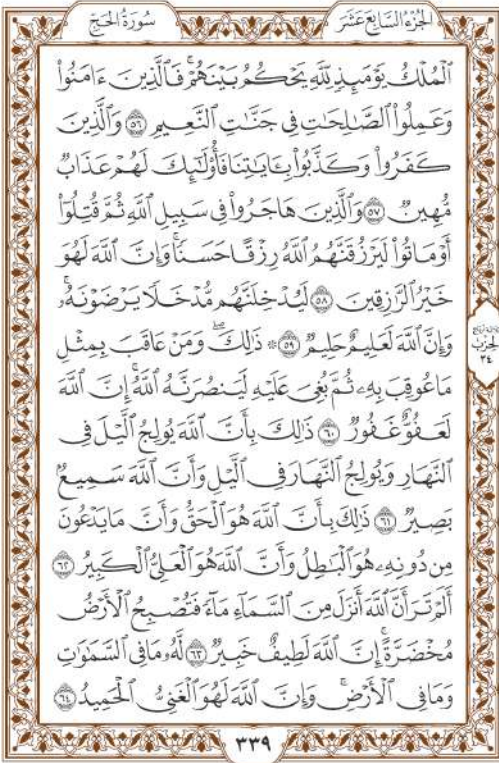 الجزء السابع عشر
سورة الحج
ٱلْمُلْكُ يَوْمَئِذٍ لِّلَّهِ يَحْكُمُ بَيْنَهُمْ ۚ فَٱلَّذِينَ ءَامَنُوا۟
وَعَمِلُوا۟ ٱلصَّٰلِحَٰتِ فِى جَنَّٰتِ ٱلنَّعِيمِ ۝٥٦ وَٱلَّذِينَ
كَفَرُوا۟ وَكَذَّبُوا۟ بِـَٔايَٰتِنَا فَأُو۟لَٰٓئِكَ لَهُمْ عَذَابٌ
مُّهِينٌ ۝٥٧ وَٱلَّذِينَ هَاجَرُوا۟ فِى سَبِيلِ ٱللَّهِ ثُمَّ قُتِلُوٓا۟
أَوْ مَاتُوا۟ لَيَرْزُقَنَّهُمُ ٱللَّهُ رِزْقًا حَسَنًا ۚ وَإِنَّ ٱللَّهَ لَهُوَ
خَيْرُ ٱلرَّٰزِقِينَ ۝٥٨ لَيُدْخِلَنَّهُم مُّدْخَلًا يَرْضَوْنَهُۥ ۗ
وَإِنَّ ٱللَّهَ لَعَلِيمٌ حَلِيمٌ ۝٥٩ ۞ ذَٰلِكَ ۖ وَمَنْ عَاقَبَ بِمِثْلِ
مَا عُوقِبَ بِهِۦ ثُمَّ بُغِىَ عَلَيْهِ لَيَنصُرَنَّهُ ٱللَّهُ ۗ إِنَّ ٱللَّهَ
لَعَفُوٌّ غَفُورٌ ۝٦٠ ذَٰلِكَ بِأَنَّ ٱللَّهَ يُولِجُ ٱلَّيْلَ فِى
ٱلنَّهَارِ وَيُولِجُ ٱلنَّهَارَ فِى ٱلَّيْلِ وَأَنَّ ٱللَّهَ سَمِيعٌۢ
بَصِيرٌ ۝٦١ ذَٰلِكَ بِأَنَّ ٱللَّهَ هُوَ ٱلْحَقُّ وَأَنَّ مَا يَدْعُونَ
مِن دُونِهِۦ هُوَ ٱلْبَٰطِلُ وَأَنَّ ٱللَّهَ هُوَ ٱلْعَلِىُّ ٱلْكَبِيرُ ۝٦٢
أَلَمْ تَرَ أَنَّ ٱللَّهَ أَنزَلَ مِنَ ٱلسَّمَآءِ مَآءً فَتُصْبِحُ ٱلْأَرْضُ
مُخْضَرَّةً ۗ إِنَّ ٱللَّهَ لَطِيفٌ خَبِيرٌ ۝٦٣ لَّهُۥ مَا فِى ٱلسَّمَٰوَٰتِ
وَمَا فِى ٱلْأَرْضِ ۗ وَإِنَّ ٱللَّهَ لَهُوَ ٱلْغَنِىُّ ٱلْحَمِيدُ ۝٦٤
الحزب
٣٤
٣٣٩